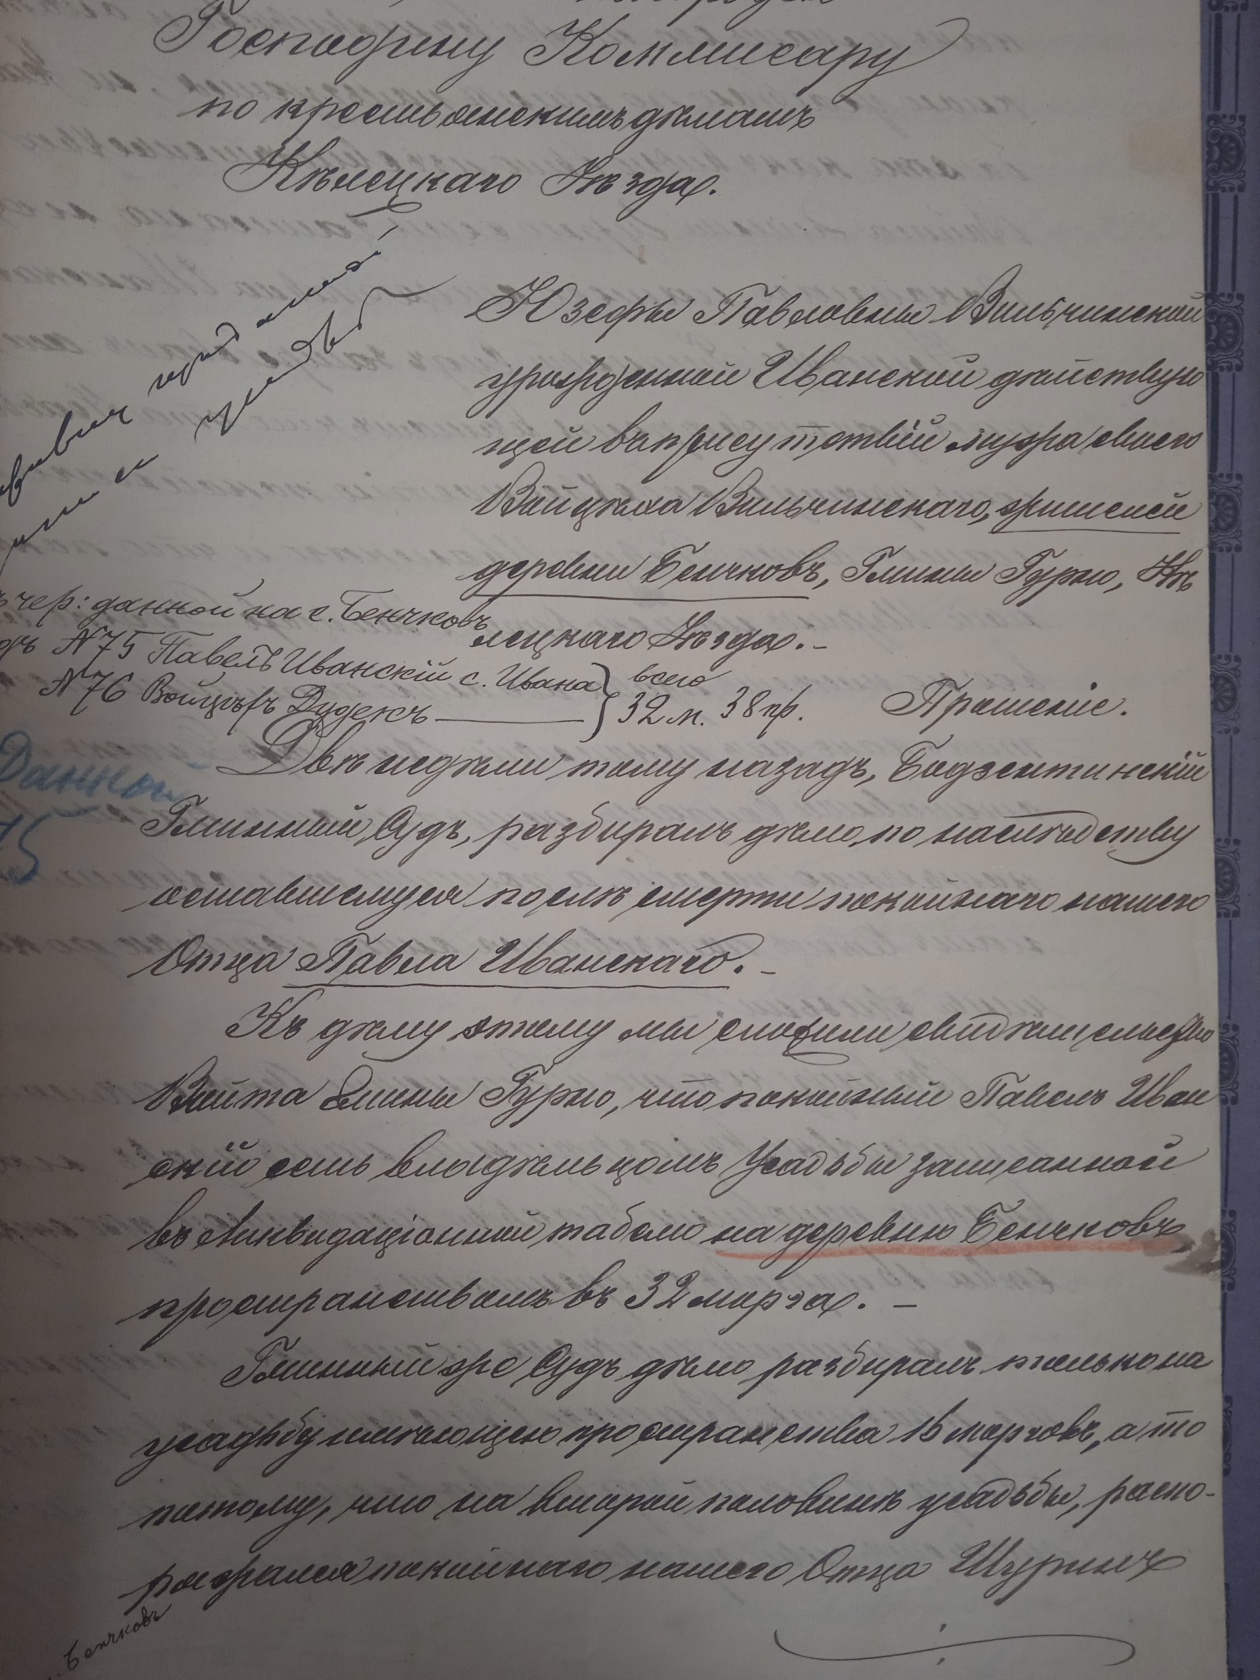 Господину Коммисару
по крестьянскимъ дѣламъ
Кѣлецкаго Уѣзда.
Юзефы Павловны Вильчинской
урожденной Иванской дѣйствую
щей въ присутствіи мужа своего
Войцѣха Вильчинскаго, жителей
деревни Бенчковъ, Гмины Гурно, Кѣ
лецкаго Уѣзда. –
чер: данной на с. Бенчковъ
№ 75 Павелъ Иванскій с. Ивана } всего
№ 76 Войцѣхъ Дудекъ — } 32 м. 38 пр.
Прошеніе.
Двѣ недѣли тому назадъ, Бодзентинскій
Данной
75
Гминный Судъ, разбиралъ дѣло, по наслѣдству
оставшемуся послѣ смерти покойнаго нашего
Отца Павла Иванскаго. –
Къ дѣлу этому мы сложили свидѣтельство
Войта Гмины Гурно, что покойный Павелъ Иван
скій есть владѣльцомъ Усадьбы записанной
въ Ликвидаціонной табели на деревню Бенчковъ
пространствомъ въ 32 морга. –
Гминный же Судъ дѣло разбиралъ только на
усадьбу имѣющею пространства 16 морговъ, а то
потому, что на второй половинѣ усадьбы, распо-
рожался покойнаго нашего Отца Шуринъ
Бенчковъ